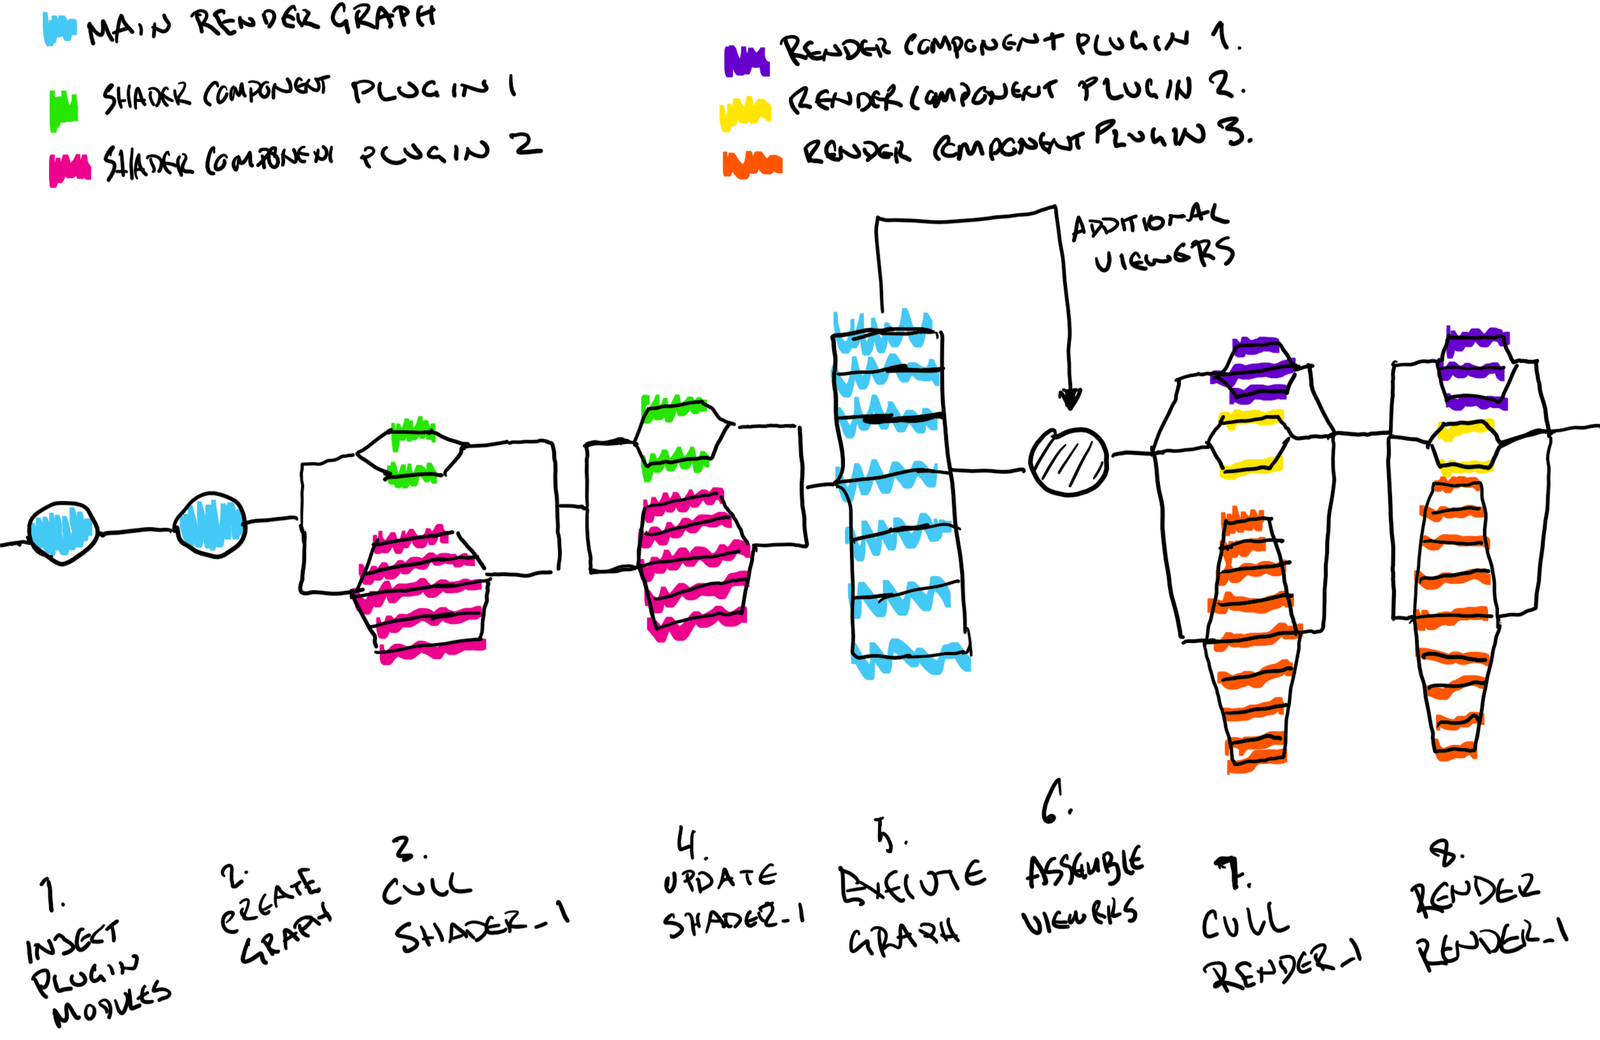 MAIN RENDER GRAPH
SHADER COMPONENT PLUGIN 1
SHADER COMPONENT PLUGIN 2
RENDER COMPONENT PLUGIN 1.
RENDER COMPONENT PLUGIN 2.
RENDER COMPONENT PLUGIN 3.
ADDITIONAL
VIEWERS
1.
INJECT
PLUGIN
MODULES
2.
CREATE
GRAPH
3.
CULL
SHADER_1
4.
UPDATE
SHADER_1
5.
EXECUTE
GRAPH
6.
ASSEMBLE
VIEWERS
7.
CULL
RENDER_1
8.
RENDER
RENDER_1